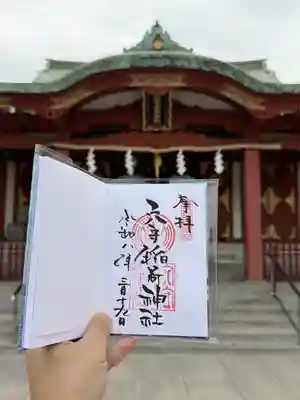 奉拝
穴守稲荷神社
令和八年三月十九日